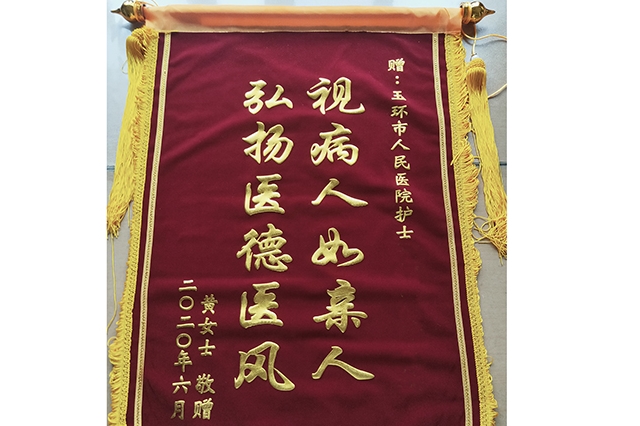 赠：玉环市人民医院护士
视病人如亲人
弘扬医德医风
黄女士 敬赠
二〇二〇年六月